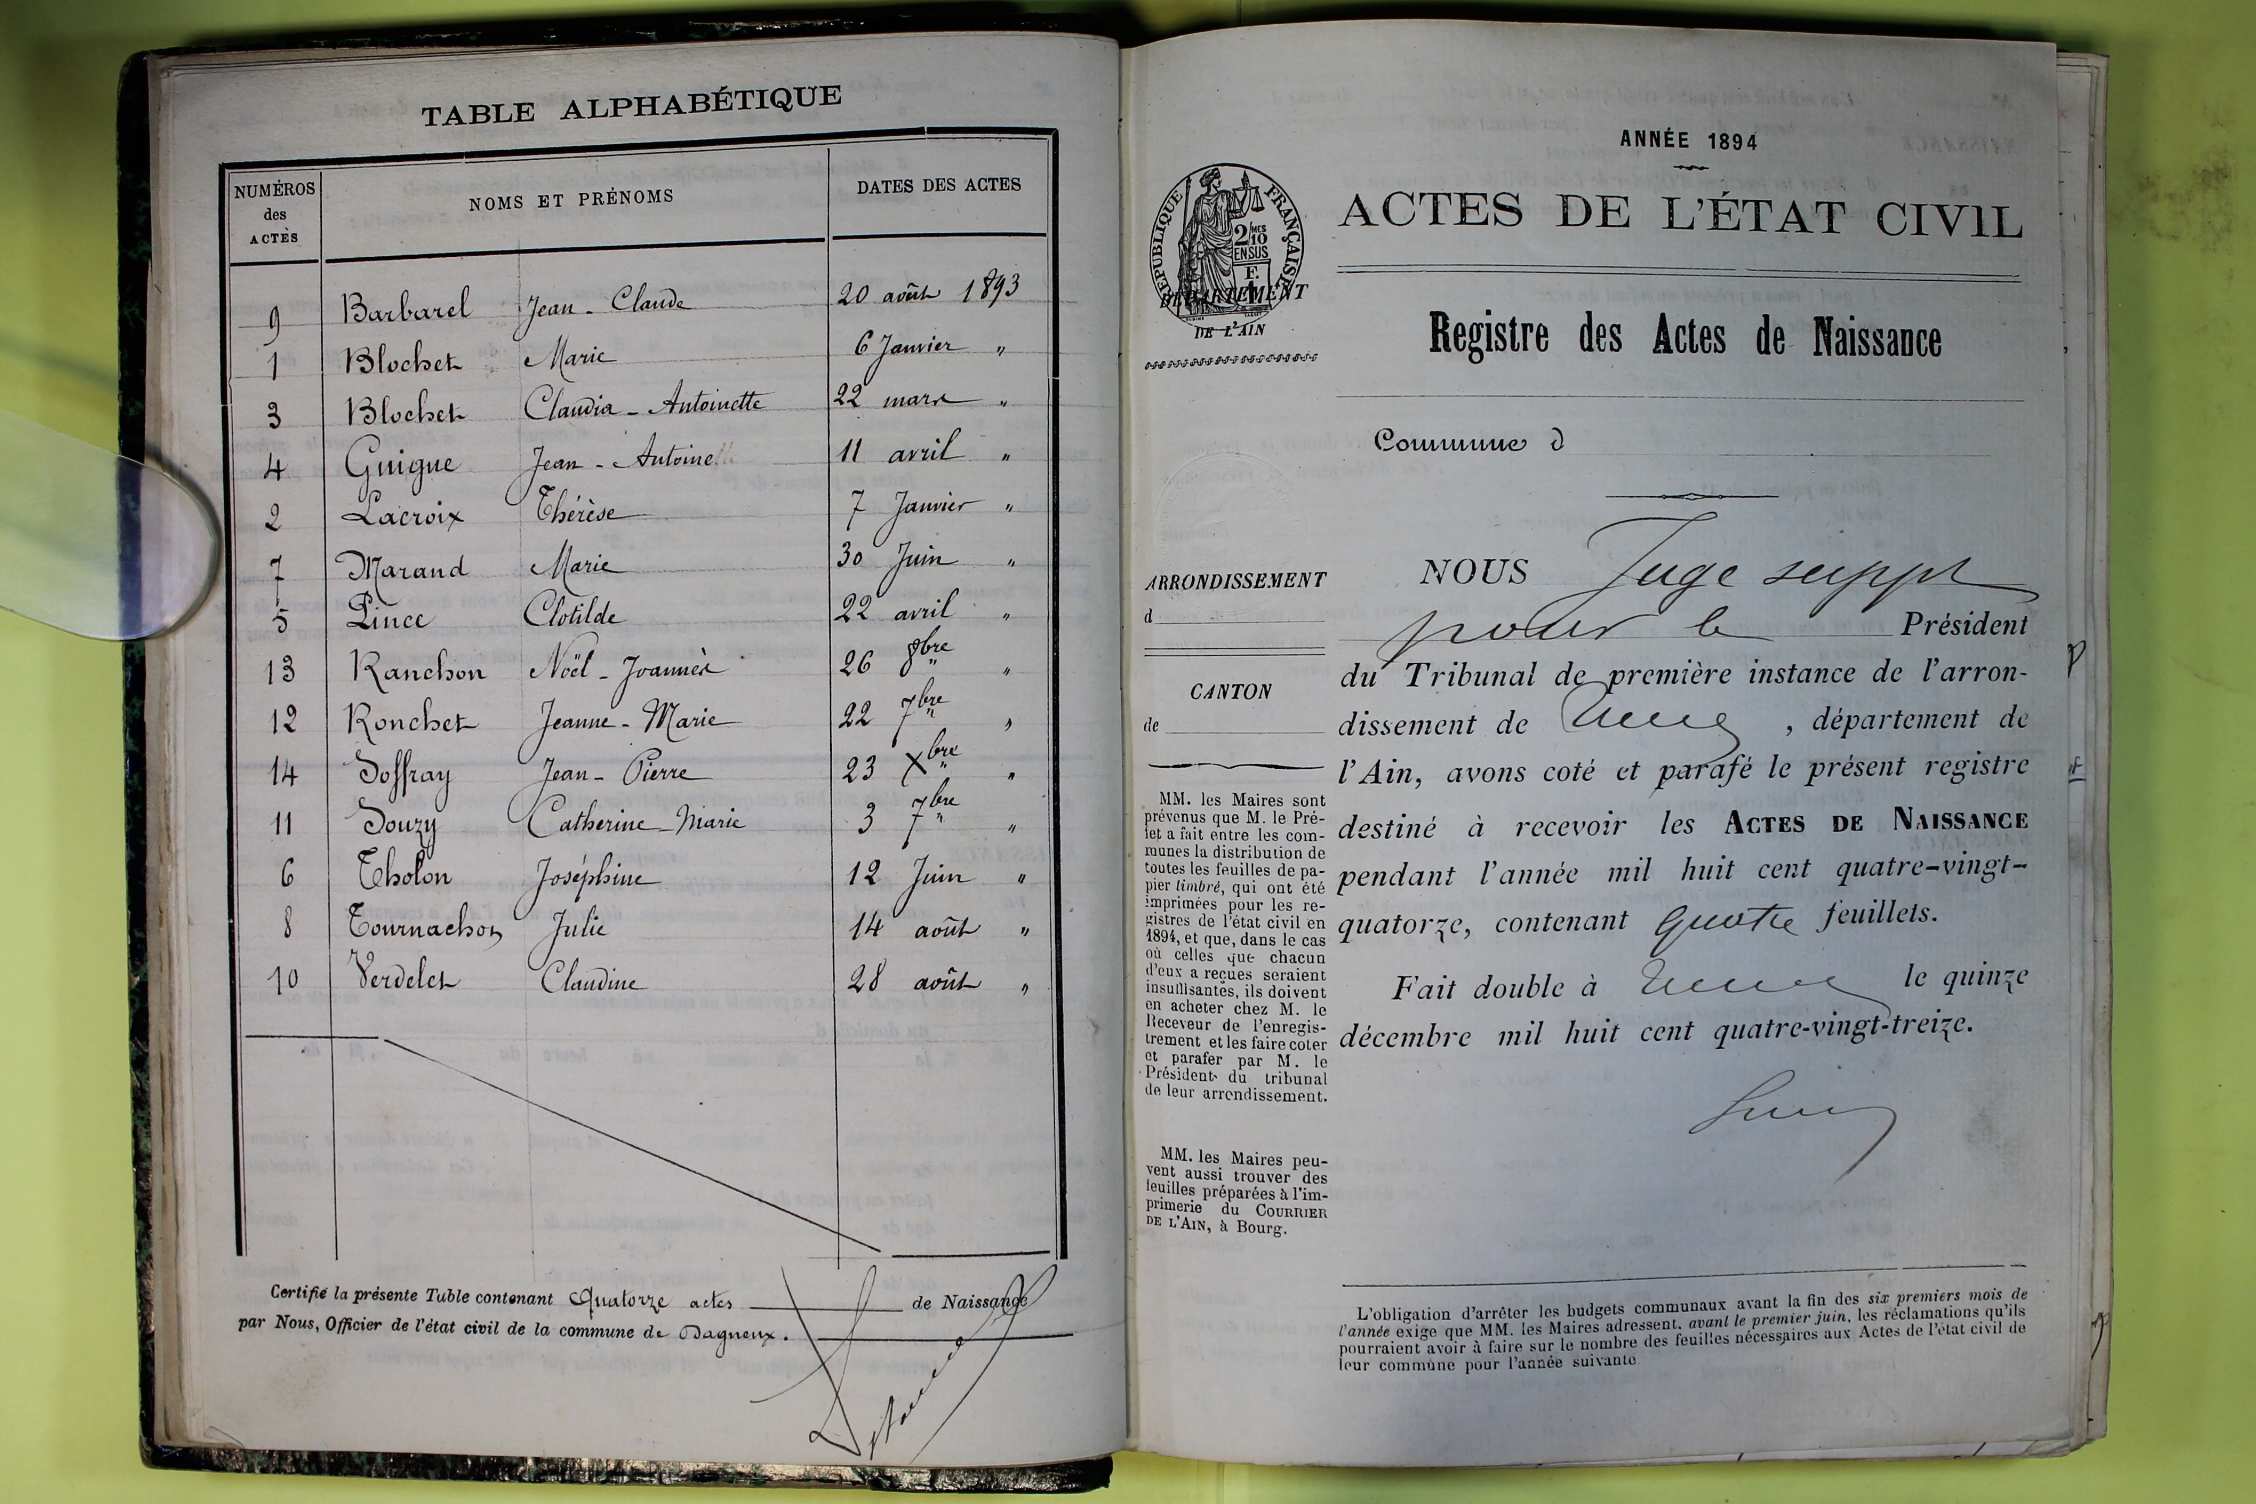 TABLE ALPHABÉTIQUE
NUMÉROS des ACTES NOMS ET PRÉNOMS DATES DES ACTES
9 Barbarel Jean - Claude 20 août 1893
1 Blochet Marie 6 Janvier "
3 Blochet Claudia - Antoinette 22 mars "
4 Guigue Jean - Antoine 11 avril "
2 Lacroix Thérèse 7 Janvier "
7 Marand Marie 30 Juin "
5 Pince Clotilde 22 avril "
13 Ranchon Noël - Joannès 26 8bre "
12 Ronchet Jeanne - Marie 22 7bre "
14 Soffray Jean - Pierre 23 Xbre "
11 Souzy Catherine - Marie 3 7bre "
6 Tholon Joséphine 12 Juin "
8 Tournachon Julie 14 août "
10 Verdelet Claudine 28 août "
Certifié la présente Table contenant Quatorze actes de Naissance
par Nous, Officier de l'état civil de la commune de Dagneux.
ANNÉE 1894
ACTES DE L'ÉTAT CIVIL
RÉPUBLIQUE FRANÇAISE
2/10 MES
EN SUS
DÉPARTEMENT
DE L'AIN
Registre des Actes de Naissance
Commune d
ARRONDISSEMENT
d
CANTON
de
MM. les Maires sont
prévenus que M. le Pré-
fet a fait entre les com-
munes la distribution de
toutes les feuilles de pa-
pier timbré, qui ont été
imprimées pour les re-
gistres de l'état civil en
1894, et que, dans le cas
où celles que chacun
d'eux a reçues seraient
insuffisantes, ils doivent
en acheter chez M. le
Receveur de l'enregis-
trement et les faire coter
et parafer par M. le
Président du tribunal
de leur arrondissement.
MM. les Maires peu-
vent aussi trouver des
feuilles préparées à l'im-
primerie du COURRIER
DE L'AIN, à Bourg.
NOUS Juge suppt
pour le Président
du Tribunal de première instance de l'arron-
dissement de , département de
l'Ain, avons coté et parafé le présent registre
destiné à recevoir les ACTES DE NAISSANCE
pendant l'année mil huit cent quatre-vingt-
quatorze, contenant quatre feuillets.
Fait double à le quinze
décembre mil huit cent quatre-vingt-treize.
L'obligation d'arrêter les budgets communaux avant la fin des six premiers mois de
l'année exige que MM. les Maires adressent, avant le premier juin, les réclamations qu'ils
pourraient avoir à faire sur le nombre des feuilles nécessaires aux Actes de l'état civil de
leur commune pour l'année suivante